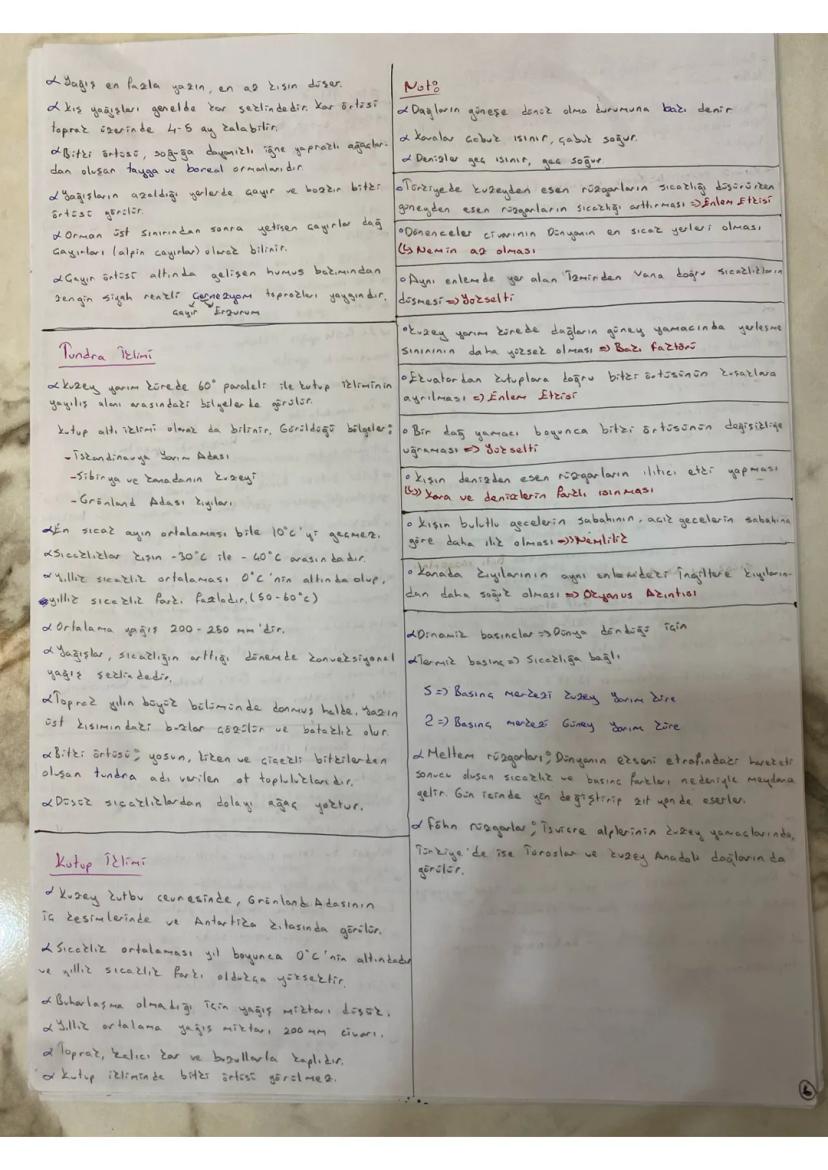 α Yağış en fazla yazın, en az kışın düşer.
α Kış yağışları genelde kar şeklindedir. Kar örtüsü
toprak üzerinde 4-5 ay kalabilir.
α Bitki örtüsü, soğuğa dayanıklı iğne yapraklı ağaçlar-
dan oluşan tayga ve boreal ormanlarıdır
α Yağışların azaldığı yerlerde çayır ve bozkır bitki
örtüsü görülür.
α Orman üst sınırından sonra yetişen çayırlar dağ
çayırları (alpin çayırlar) olarak bilinir.
α Çayır örtüsü altında gelişen humus bakımından
zengin siyah renkli çernezyom toprakları yaygındır.
Çayır Erzurum
Tundra İklimi
α Kuzey yarım kürede 60° paraleli ile kutup ikliminin
yayılış alanı arasındaki bölgelerde görülür.
Kutup altı iklimi olarak da bilinir. Görüldüğü bölgeler:
- İskandinavya Yarım Adası
- Sibirya ve Kanadanın kuzeyi
- Grönland Adası kıyıları
α En sıcak ayın ortalaması bile 10°C'yi geçmez.
α Sıcaklıklar kışın -30°C ile -40°C arasındadır.
α Yıllık sıcaklık ortalaması 0°C'nin altında olup,
yıllık sıcaklık farkı fazladır. (50-60°C)
α Ortalama yağış 200-250 mm'dir.
α Yağışlar, sıcaklığın arttığı dönemde konveksiyonel
yağış şeklindedir.
α Toprak yılın büyük bölümünde donmuş halde. Yazın
üst kısımındaki buzlar çözülür ve bataklık olur.
α Bitki örtüsü; yosun, liken ve çiçekli bitkilerden
oluşan tundra adı verilen ot topluluklarıdır.
α Düşük sıcaklıklardan dolayı ağaç yoktur.
Kutup İklimi
α Kuzey kutbu çevresinde, Grönland Adasının
iç kesimlerinde ve Antartika kıtasında görülür.
α Sıcaklık ortalaması yıl boyunca 0°C'nin altındadır
ve yıllık sıcaklık farkı oldukça yüksektir.
α Buharlaşma olmadığı için yağış miktarı düşük.
α Yıllık ortalama yağış miktarı 200 mm civarı.
α Toprak, kalıcı kar ve buzullarla kaplıdır.
α Kutup ikliminde bitki örtüsü görülmez.
Not:
α Dağların güneşe dönük olma durumuna bakı denir
α Karalar çabuk ısınır, çabuk soğur.
α Denizler geç ısınır, geç soğur.
• Türkiyede kuzeyden esen rüzgarların sıcaklığı düşürürken
güneyden esen rüzgarların sıcaklığı arttırması => Enlem Etkisi
• Dönenceler civarının Dünyanın en sıcak yerleri olması
↳ Nemin az olması
• Aynı enlemde yer alan İzmirden Vana doğru sıcaklıkların
düşmesi => Yükselti
• Kuzey yarım kürede dağların güney yamacında yerleşme
sınırının daha yüksek olması => Bakı faktörü
• Ekvatordan kutuplara doğru bitki örtüsünün kuşaklara
ayrılması => Enlem Etkisi
• Bir dağ yamacı boyunca bitki örtüsünün değişikliğe
uğraması => Yükselti
• Kışın denizden esen rüzgarların ılıtıcı etki yapması
↳ Kara ve denizlerin farklı ısınması
• Kışın bulutlu gecelerin sabahının, açık gecelerin sabahına
göre daha ılık olması => Nemlilik
• Kanada kıyılarının aynı enlemdeki İngiltere kıyıların-
dan daha soğuk olması => Okyanus Akıntısı
α Dinamik basınçlar => Dünya döndüğü için
α Termik basınç => Sıcaklığa bağlı
S => Basınç merkezi kuzey yarım küre
2 => Basınç merkezi Güney yarım küre
α Meltem rüzgarları: Dünyanın ekseni etrafındaki hareketi
sonucu oluşan sıcaklık ve basınç farkları nedeniyle meydana
gelir. Gün içinde yön değiştirip zıt yönde eserler.
α Föhn rüzgarlar; İsviçre alplerinin kuzey yamaçlarında,
Türkiye'de ise Toroslar ve kuzey Anadolu dağlarında
görülür.
6